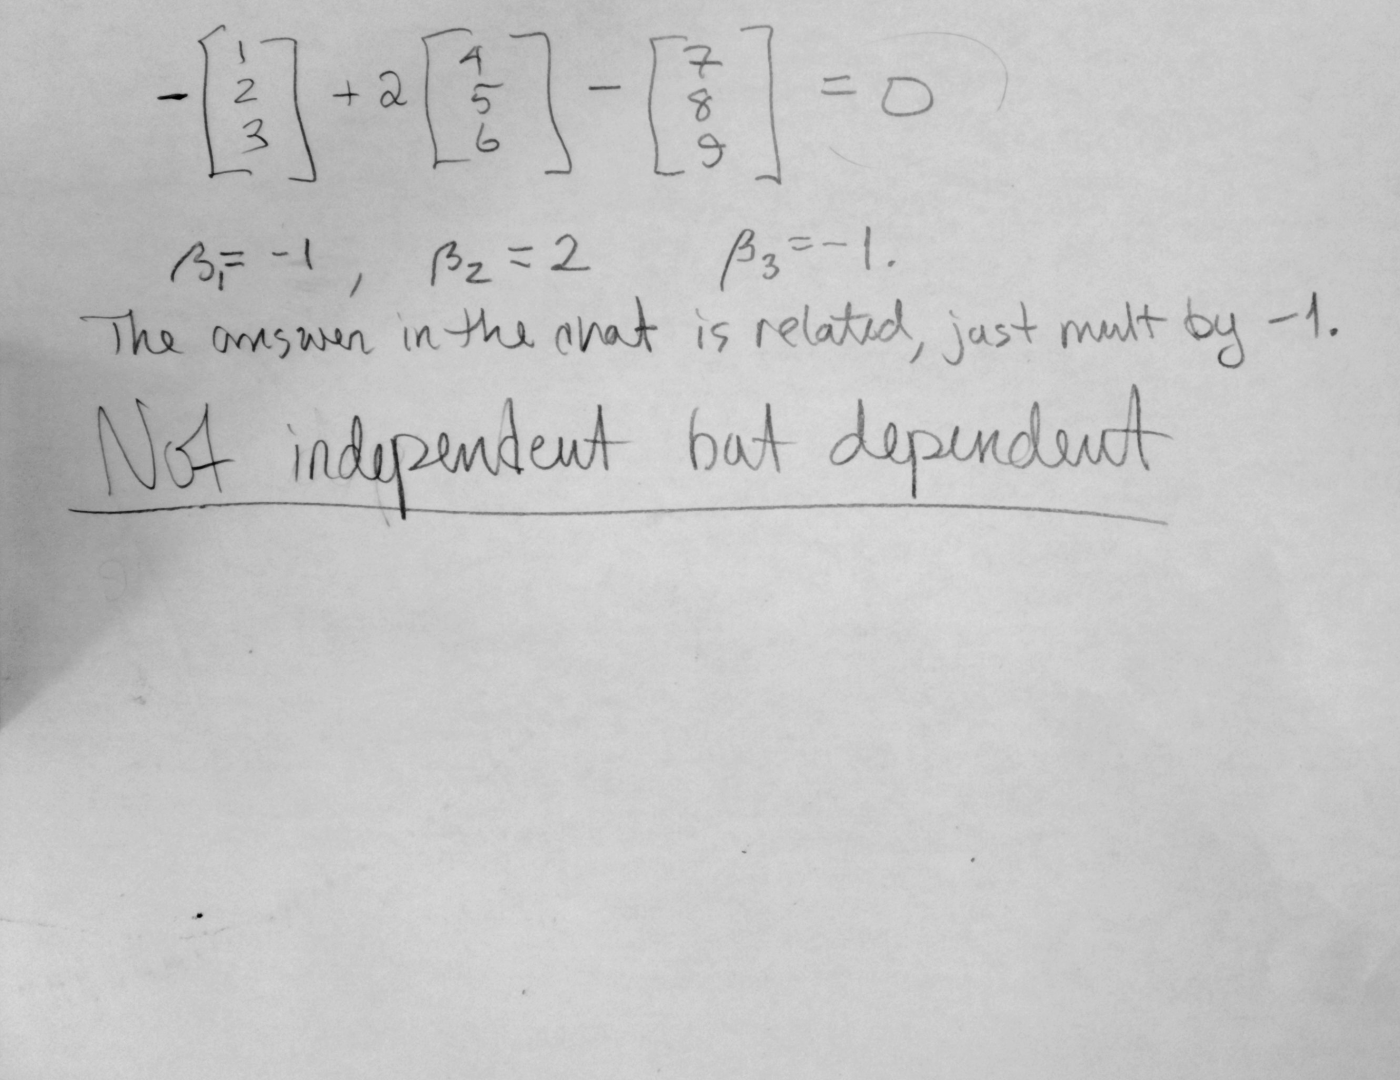 -[1 2 3] + 2[4 5 6] - [7 8 9] = 0
β₁ = -1, β₂ = 2 β₃ = -1.
The answer in the chat is related, just mult by -1.
Not independent but dependent